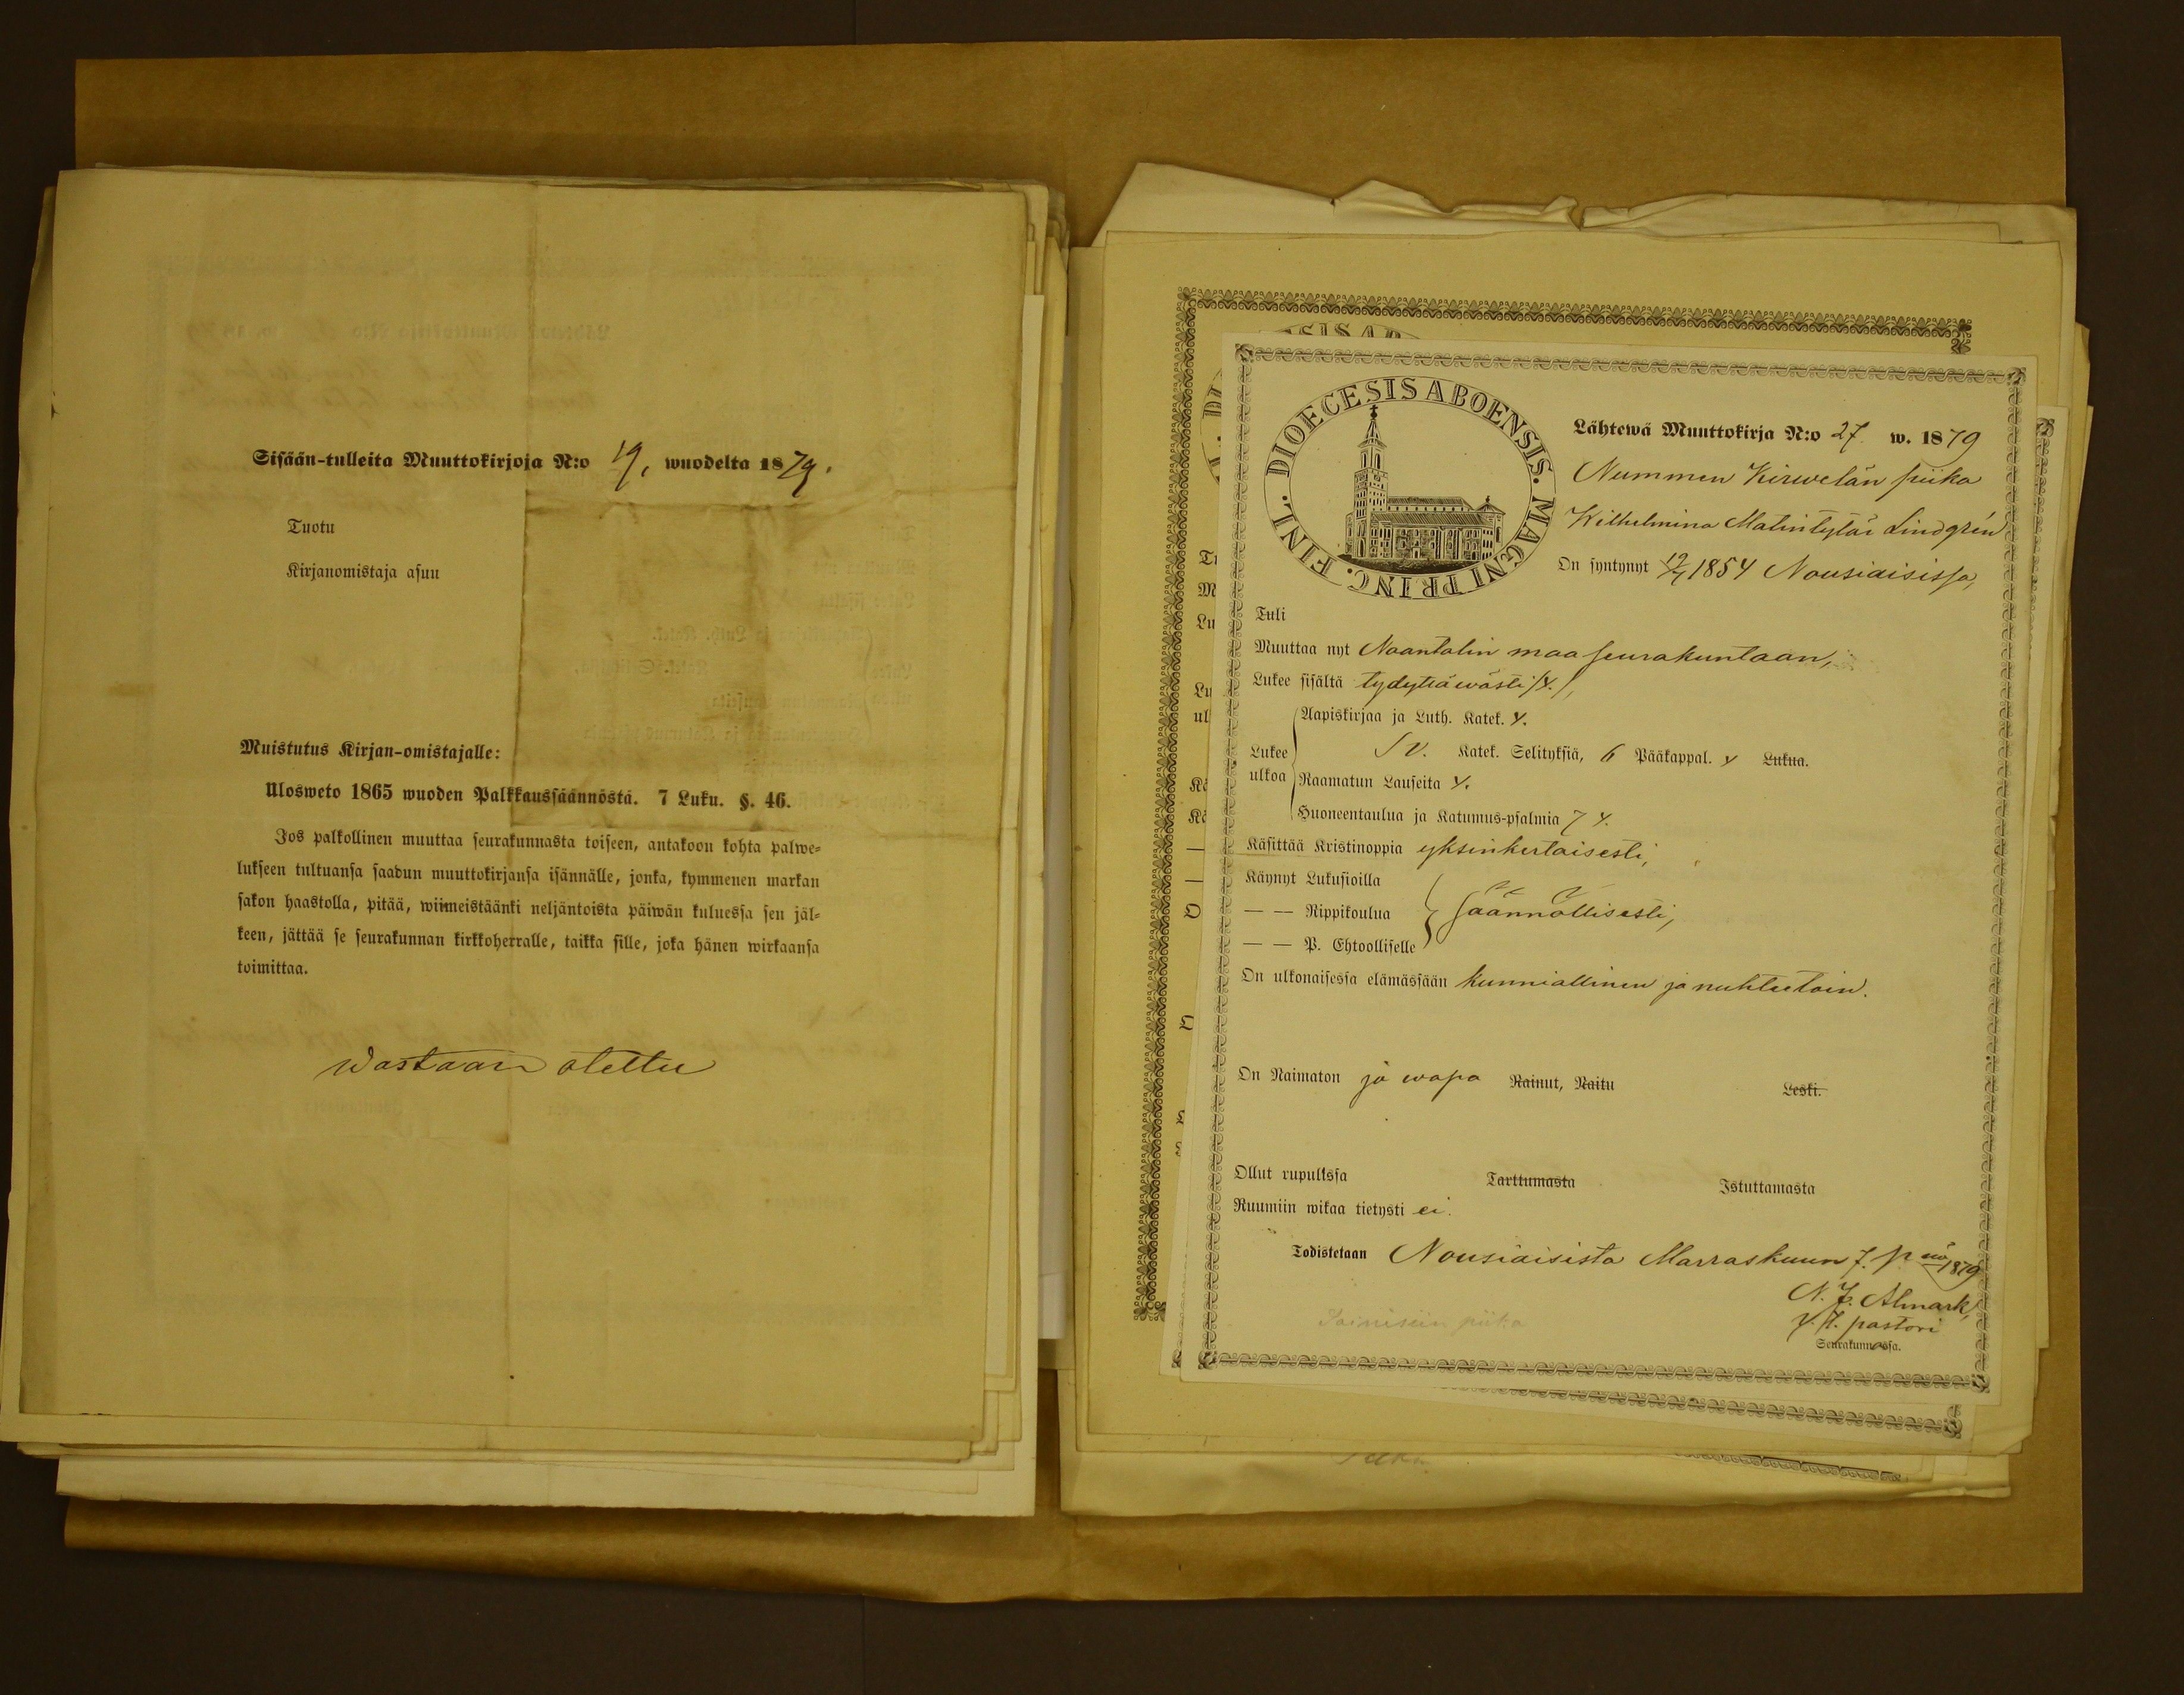 Sisään-tulleita Muuttokirjoja N:o 19, wuodelta 1879.
Tuotu
Kirjanomistaja asuu
Muistutus Kirjan-omistajalle:
Ulosweto 1865 wuoden Palkkaussäännöstä. 7 Luku. §. 46.
Jos palkollinen muuttaa seurakunnasta toiseen, antakoon kohta palwe-
lukseen tultuansa saadun muuttokirjansa isännälle, jonka, kymmenen markan
sakon haastolla, pitää, wiimeistäänki neljäntoista päiwän kuluessa sen jäl-
keen, jättää se seurakunnan kirkkoherralle, taikka sille, joka hänen wirkaansa
toimittaa.
Wastaan otettu
DIOECESIS ABOENSIS. MAGNI PRINC. FINL.
Lähtewä Muuttokirja N:o 27. w. 1879
Nummen Kirwelän piika
Wilhelmina Matintytär Lindgrén
On syntynyt 1854 Nousiaisissa,
Tuli
Muuttaa nyt Naantalin maaseurakuntaan,
Lukee sisältä tydyttäwästi /4./,
Lukee ulkoa
Aapiskirjaa ja Luth. Katek. 4.
Sv. Katek. Selityksiä, 6 Pääkappal. 4 Lukua.
Raamatun Lauseita 4.
Huoneentaulua ja Katumus-psalmia 7 4.
Käsittää Kristinoppia yksinkertaisesti,
Käynyt Lukusioilla
— — Rippikoulua säännöllisesti,
— — P. Ehtoolliselle
On ulkonaisessa elämässään kunniallinen ja nuhteetoin.
On Naimaton ja wapa Nainut, Naitu Leski.
Ollut rupulissa Tarttumasta Istuttamasta
Ruumiin wikaa tietysti ei.
Todistetaan Nousiaisista Marraskuun 7. p nä 1879
Almark,
pastori
Seurakunnassa.
piika